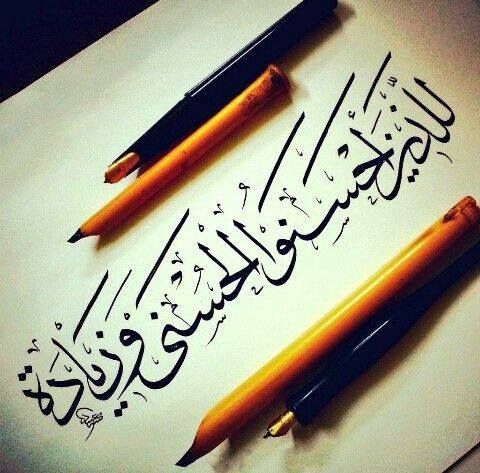 للذين أحسنوا الحسنى وزيادة